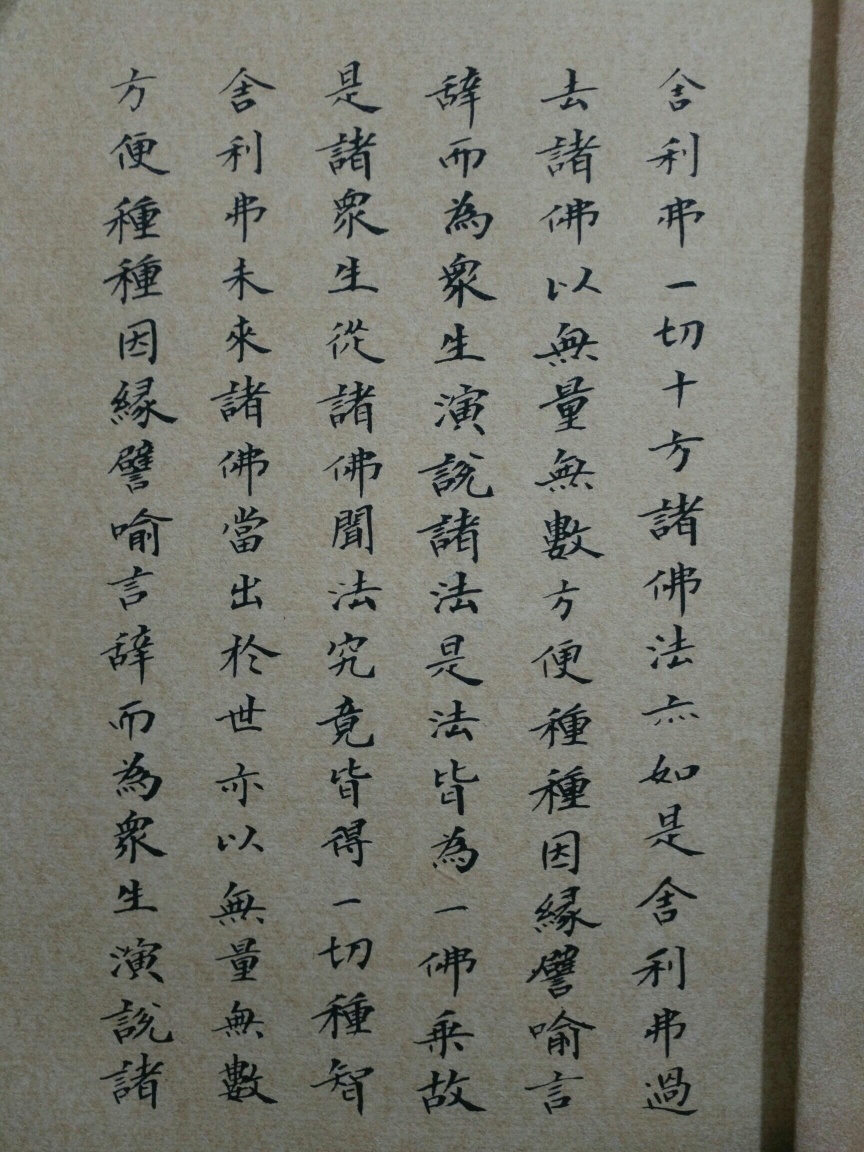 舍利弗一切十方諸佛法亦如是舍利弗過
去諸佛以無量無數方便種種因縁譬喻言
辭而為衆生演説諸法是法皆為一佛乗故
是諸衆生從諸佛聞法究竟皆得一切種智
舍利弗未來諸佛當出於世亦以無量無數
方便種種因縁譬喻言辭而為衆生演説諸